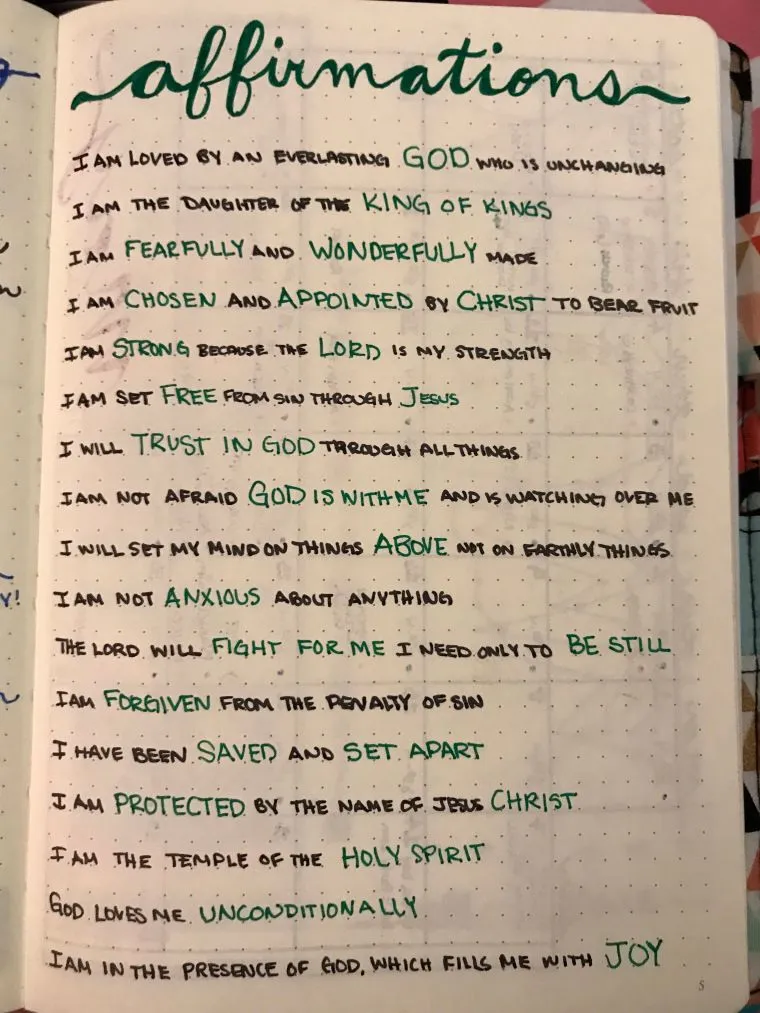 affirmations
I AM LOVED BY AN EVERLASTING GOD WHO IS UNCHANGING
I AM THE DAUGHTER OF THE KING OF KINGS
I AM FEARFULLY AND WONDERFULLY MADE
I AM CHOSEN AND APPOINTED BY CHRIST TO BEAR FRUIT
I AM STRONG BECAUSE THE LORD IS MY STRENGTH
I AM SET FREE FROM SIN THROUGH JESUS
I WILL TRUST IN GOD THROUGH ALL THINGS
I AM NOT AFRAID GOD IS WITH ME AND IS WATCHING OVER ME
I WILL SET MY MIND ON THINGS ABOVE NOT ON EARTHLY THINGS
I AM NOT ANXIOUS ABOUT ANYTHING
THE LORD WILL FIGHT FOR ME I NEED ONLY TO BE STILL
I AM FORGIVEN FROM THE PENALTY OF SIN
I HAVE BEEN SAVED AND SET APART
I AM PROTECTED BY THE NAME OF JESUS CHRIST
I AM THE TEMPLE OF THE HOLY SPIRIT
GOD LOVES ME UNCONDITIONALLY
I AM IN THE PRESENCE OF GOD, WHICH FILLS ME WITH JOY
5